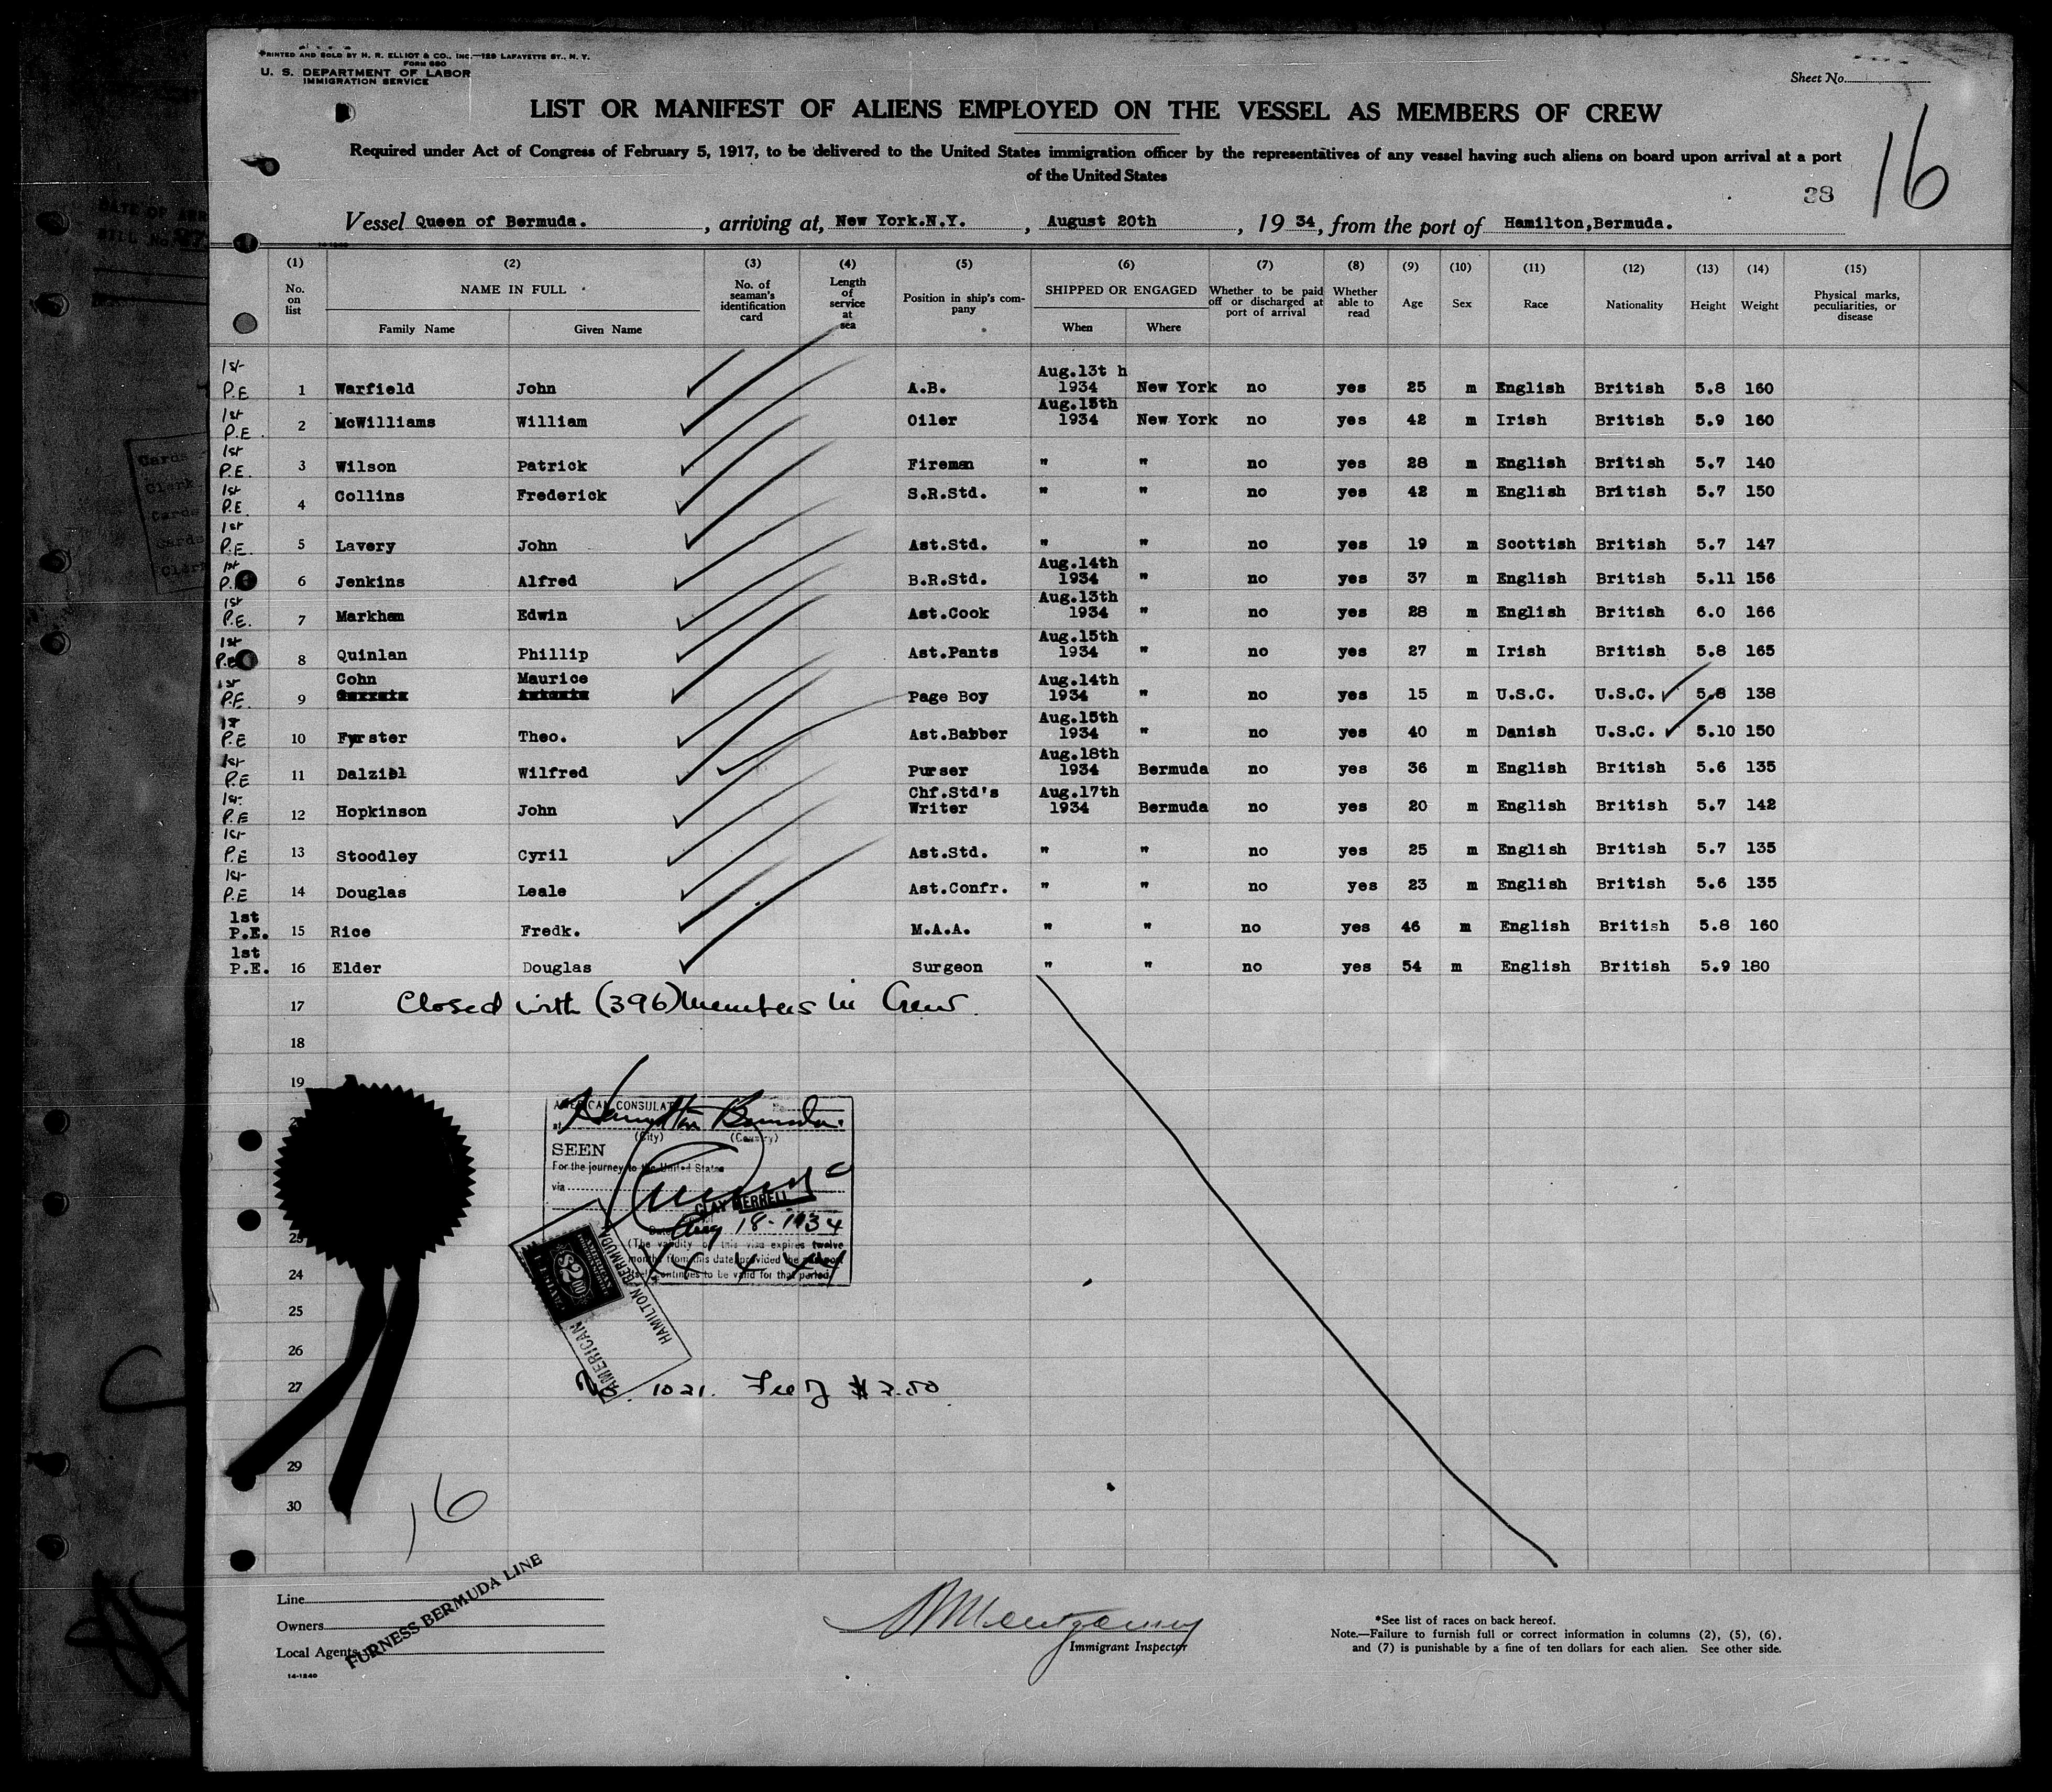 PRINTED AND SOLD BY H. R. ELLIOT & CO., INC.—129 LAFAYETTE ST., N. Y.
FORM 680
U. S. DEPARTMENT OF LABOR
IMMIGRATION SERVICE
Sheet No.
LIST OR MANIFEST OF ALIENS EMPLOYED ON THE VESSEL AS MEMBERS OF CREW
16
Required under Act of Congress of February 5, 1917, to be delivered to the United States immigration officer by the representatives of any vessel having such aliens on board upon arrival at a port
of the United States
38
Vessel Queen of Bermuda. , arriving at, New York.N.Y. , August 20th , 19 34, from the port of Hamilton,Bermuda.
(1) (2) (3) (4) (5) (6) (7) (8) (9) (10) (11) (12) (13) (14) (15)
No. on list NAME IN FULL Family Name Given Name No. of seaman's identification card Length of service at sea Position in ship's company SHIPPED OR ENGAGED When Where Whether to be paid off or discharged at port of arrival Whether able to read Age Sex Race Nationality Height Weight Physical marks, peculiarities, or disease
1st P.E 1 Warfield John A.B. Aug.13t h 1934 New York no yes 25 m English British 5.8 160
1st P.E. 2 McWilliams William Oiler Aug.15th 1934 New York no yes 42 m Irish British 5.9 160
1st P.E. 3 Wilson Patrick Fireman " " no yes 28 m English British 5.7 140
1st P.E. 4 Collins Frederick S.R.Std. " " no yes 42 m English British 5.7 150
1st P.E. 5 Lavery John Ast.Std. " " no yes 19 m Scottish British 5.7 147
1st P. 6 Jenkins Alfred B.R.Std. Aug.14th 1934 " no yes 37 m English British 5.11 156
1st P.E. 7 Markham Edwin Ast.Cook Aug.13th 1934 " no yes 28 m English British 6.0 166
1st P.E 8 Quinlan Phillip Ast.Pants Aug.15th 1934 " no yes 27 m Irish British 5.8 165
1st P.E. 9 Cohn Maurice Page Boy Aug.14th 1934 " no yes 15 m U.S.C. U.S.C. 5.8 138
1st P.E 10 Fyrster Theo. Ast.Babber Aug.15th 1934 " no yes 40 m Danish U.S.C. 5.10 150
1st P.E 11 Dalziel Wilfred Purser Aug.18th 1934 Bermuda no yes 36 m English British 5.6 135
1st P.E 12 Hopkinson John Chf.Std's Writer Aug.17th 1934 Bermuda no yes 20 m English British 5.7 142
1st P.E 13 Stoodley Cyril Ast.Std. " " no yes 25 m English British 5.7 135
1st P.E 14 Douglas Leale Ast.Confr. " " no yes 23 m English British 5.6 135
1st P.E. 15 Rice Fredk. M.A.A. " " no yes 46 m English British 5.8 160
1st P.E. 16 Elder Douglas Surgeon " " no yes 54 m English British 5.9 180
17 Closed with (396) members in Crew
18
19
AMERICAN CONSULATE
at Hamilton Bermuda.
(City) (Country)
SEEN
For the journey to the United States
via
CLAY MERRELL
Date Aug 18-1934
(The validity of this visa expires twelve
months from this date, provided the
itself continues to be valid for that period)
HAMILTON BERMUDA
AMERICAN
23
24
25
26
27 No. 1021. Fee of $2.00
29
30
16
Line
Owners
Local Agents
FURNESS BERMUDA LINE
Montgomery
Immigrant Inspector
*See list of races on back hereof.
Note.—Failure to furnish full or correct information in columns (2), (5), (6),
and (7) is punishable by a fine of ten dollars for each alien. See other side.
14-1240